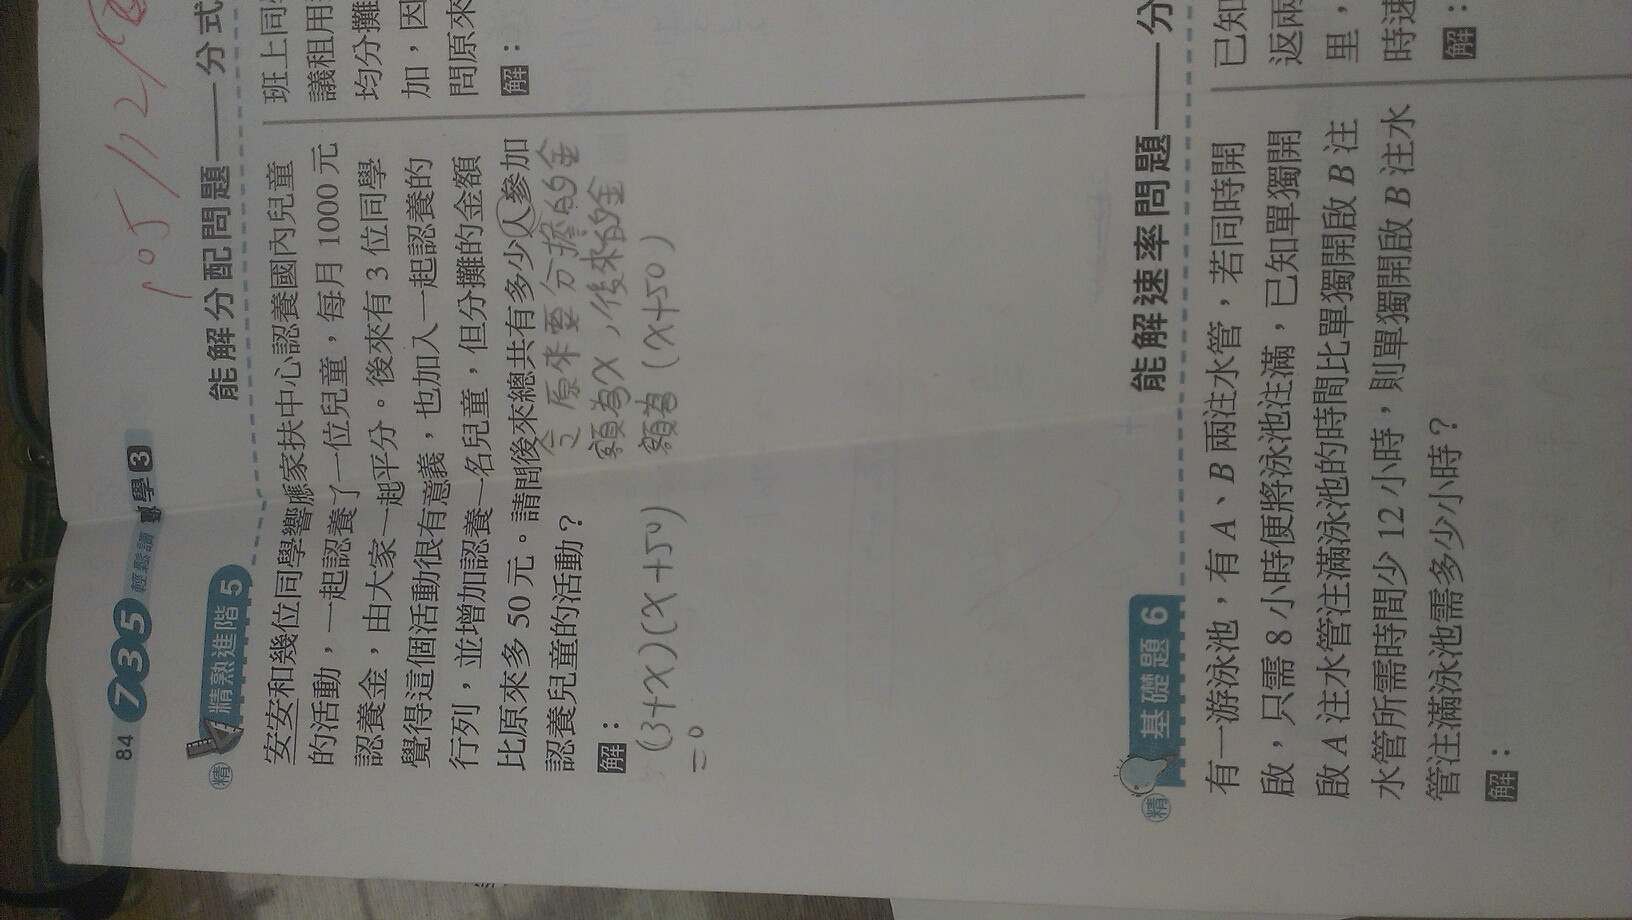 84 735 輕鬆讀 數學 3
105/12/
精 精熟進階 5 能解分配問題——分式
安安和幾位同學響應家扶中心認養國內兒童
的活動，一起認養了一位兒童，每月 1000 元
認養金，由大家一起平分。後來有 3 位同學
覺得這個活動很有意義，也加入一起認養的
行列，並增加認養一名兒童，但分攤的金額
比原來多 50 元。請問後來總共有多少人參加
認養兒童的活動？
解：
令原來要分擔的金
額為x，後來的金
額為(x+50)
(3+x)(x+50)
=0
班上同
議租用
均分攤
加，因
問原來
解：
精 基礎題 6 能解速率問題——分
有一游泳池，有 A、B 兩注水管，若同時開
啟，只需 8 小時便將泳池注滿，已知單獨開
啟 A 注水管注滿泳池的時間比單獨開啟 B 注
水管所需時間少 12 小時，則單獨開啟 B 注水
管注滿泳池需多少小時？
解：
已知
返兩
里，
時速
解：